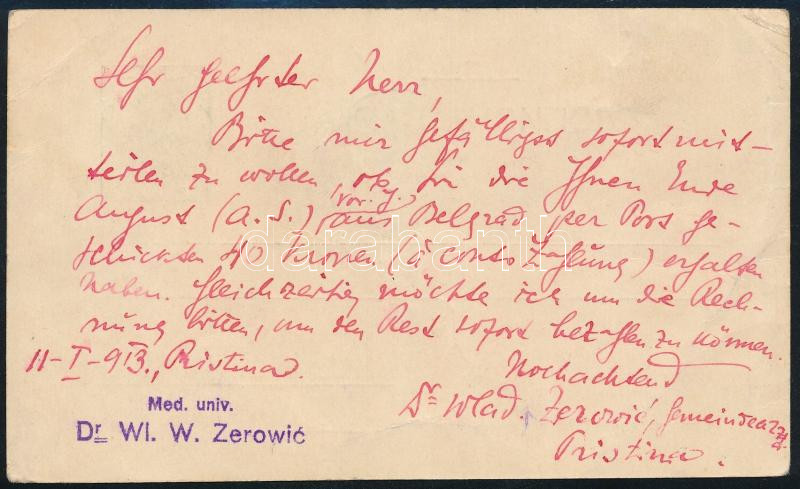 Sehr geehrter Herr,
Bitte mir gefälligst sofort mit-
teilen zu wollen, ob Sie die Ihnen Ende
August (a. S.) vor. J. aus Belgrad per Post ge-
schickten 40 Kronen (à conto Zahlung) erhalten
haben. Gleichzeitig möchte ich um die Rech-
nung bitten, um den Rest sofort bezahlen zu können.
11-I-913., Pristina.
Hochachtend
Dr Wlad. Zerowić, Gemeindearzt
Pristina.
Med. univ.
Dr Wl. W. Zerowić
darabanth